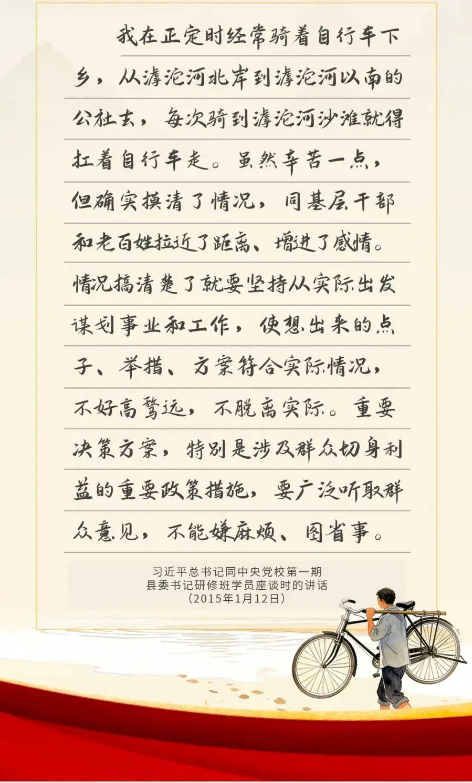 我在正定时经常骑着自行车下
乡，从滹沱河北岸到滹沱河以南的
公社去，每次骑到滹沱河沙滩就得
扛着自行车走。虽然辛苦一点，
但确实摸清了情况，同基层干部
和老百姓拉近了距离、增进了感情。
情况搞清楚了就要坚持从实际出发
谋划事业和工作，使想出来的点
子、举措、方案符合实际情况，
不好高骛远，不脱离实际。重要
决策方案，特别是涉及群众切身利
益的重要政策措施，要广泛听取群
众意见，不能嫌麻烦、图省事。
习近平总书记同中央党校第一期
县委书记研修班学员座谈时的讲话
（2015年1月12日）